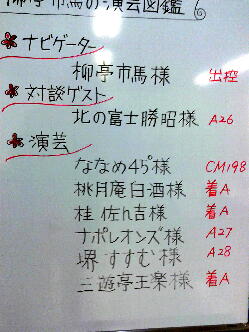 柳亭市馬の演芸図鑑 6
ナビゲーター
柳亭市馬様 出控
対談ゲスト
北の富士勝昭様 A26
演芸
ななめ45°様 CM198
桃月庵白酒様 着A
桂 佐ん吉様 着A
ナポレオンズ様 A27
堺 すすむ様 A28
三遊亭王楽様 着A